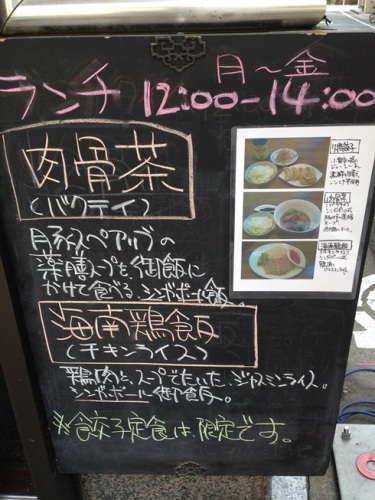 月〜金
ランチ 12:00-14:00
肉骨茶
(バクテイ)
豚スペアリブの
薬膳スープを御飯に
かけて食べる、シンガポール飯。
海南鶏飯
(チキンライス)
鶏肉と、スープでたいた、ジャスミンライス。
シンガポール御飯。
※餃子定食は、限定です。
肉骨茶
海南鶏飯